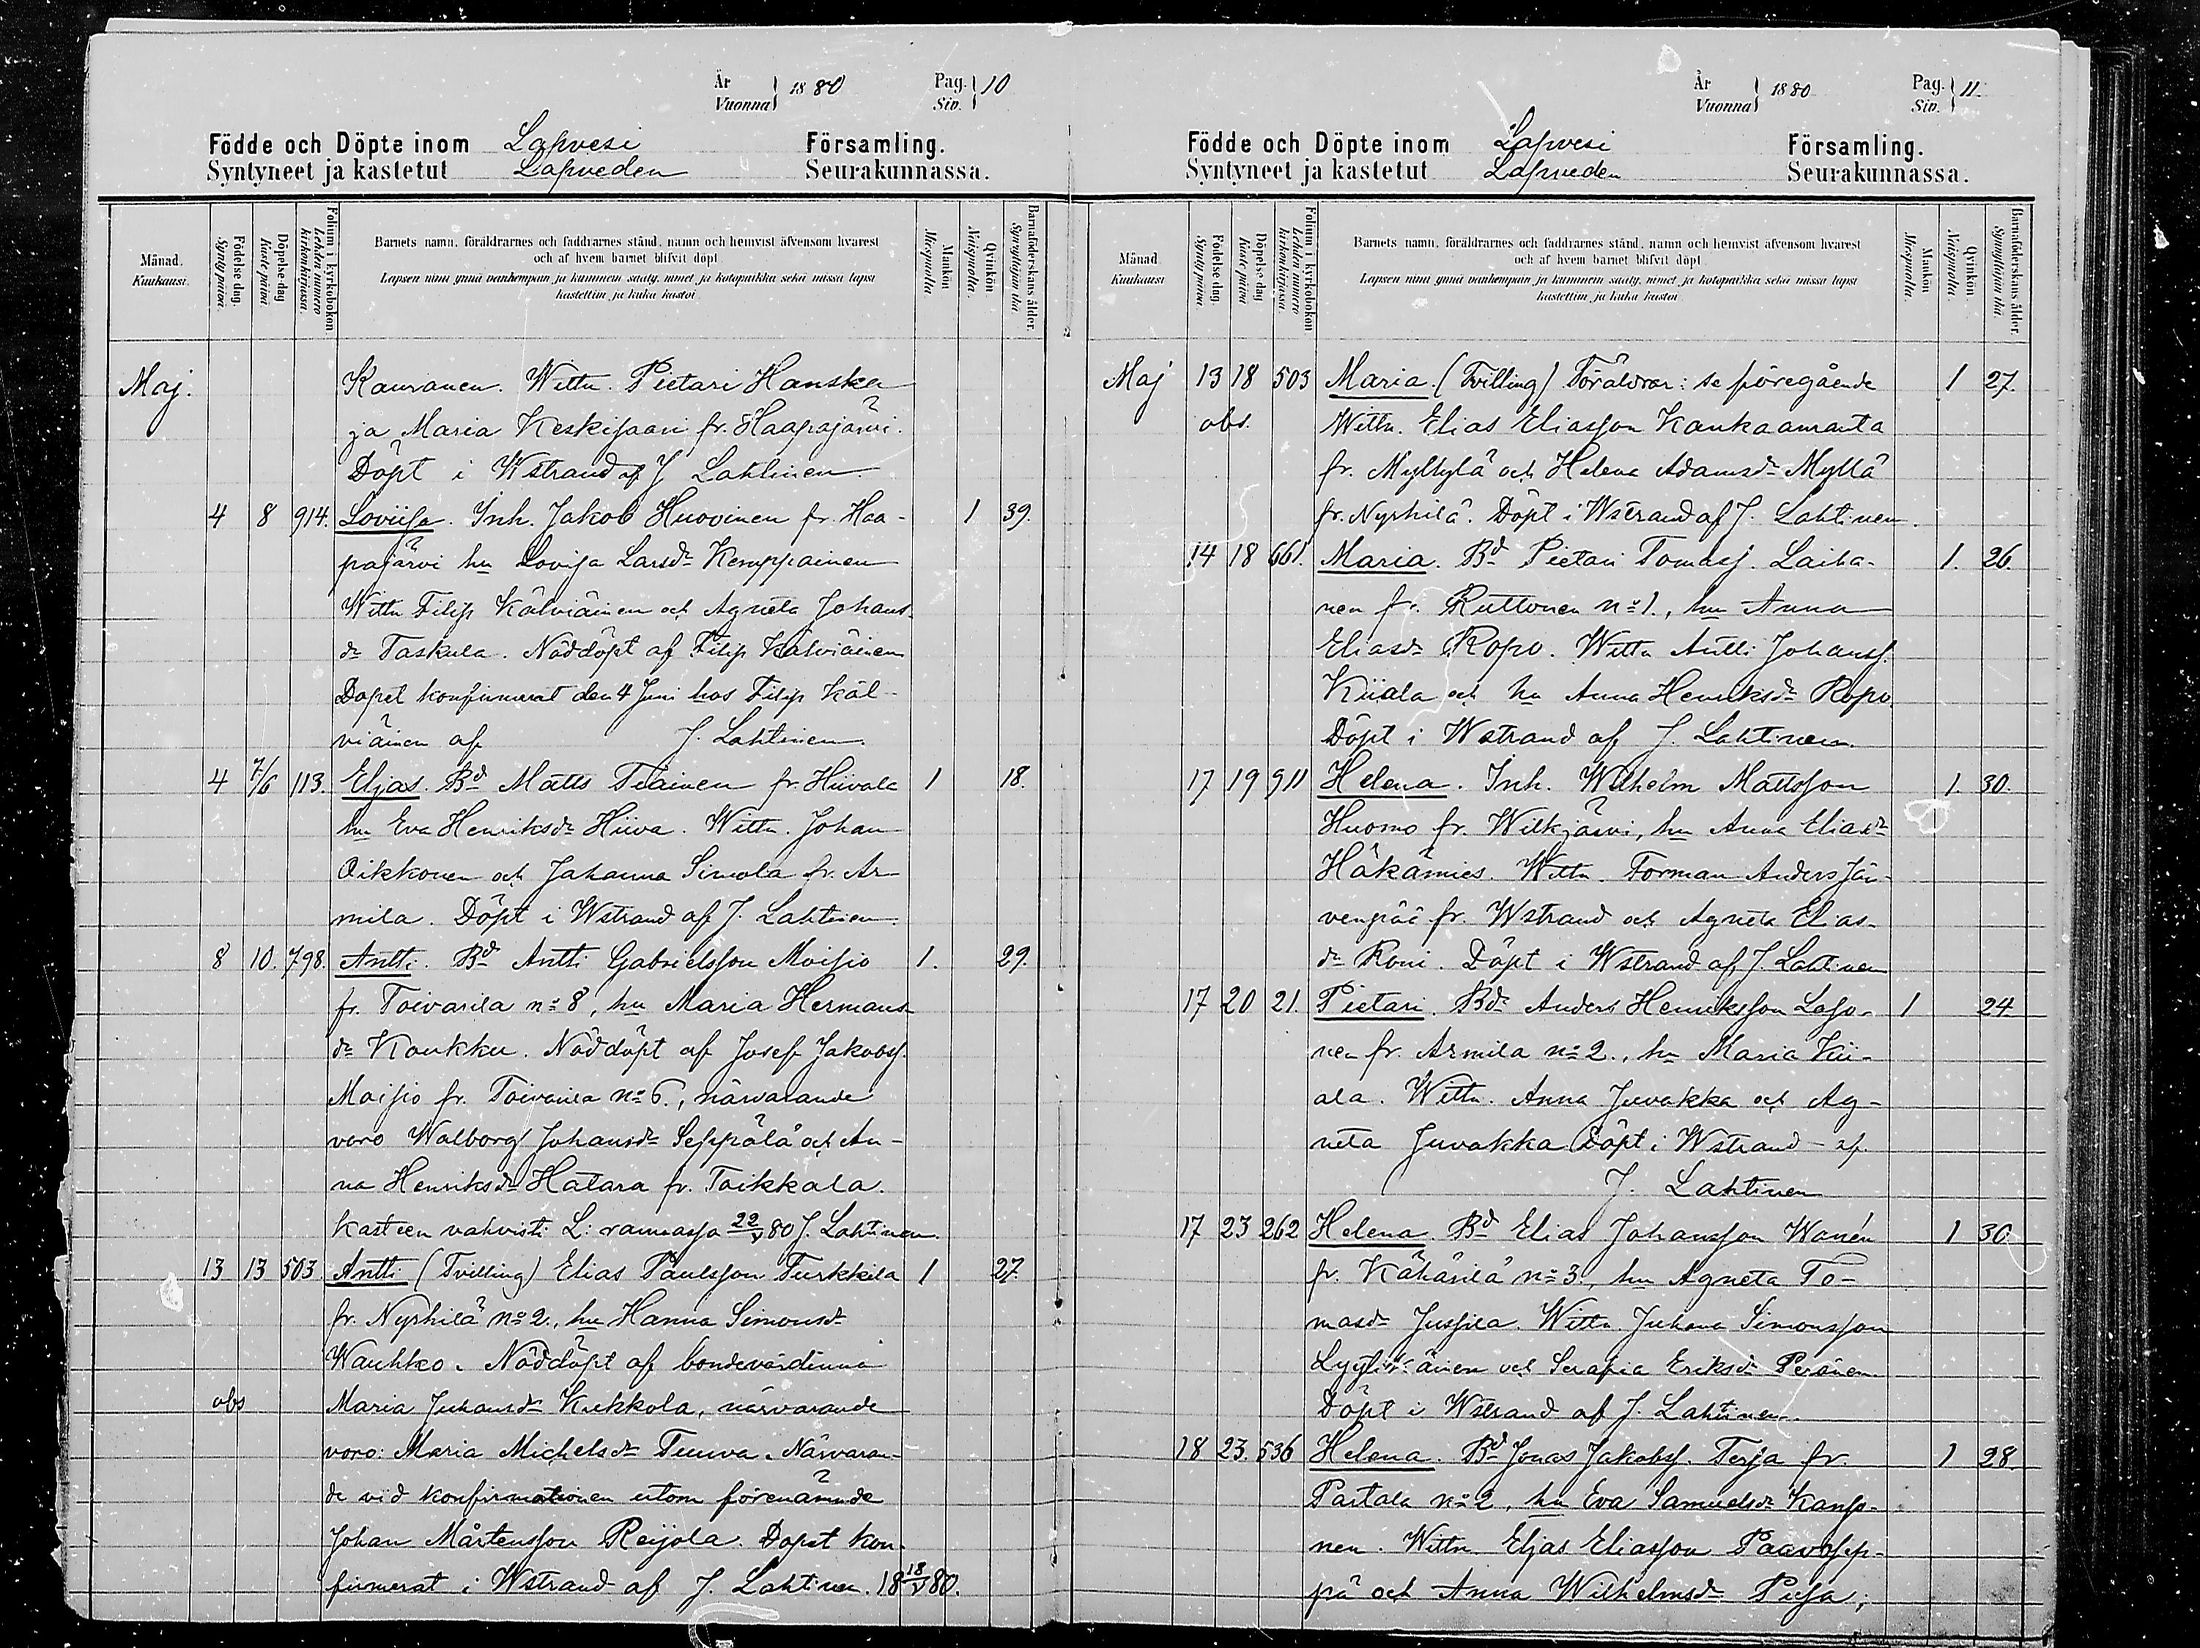 År
Vuonna } 1880
Pag.
Siv. } 10
Födde och Döpte inom Lapvesi Församling.
Syntyneet ja kastetut Lapveden Seurakunnassa.
Månad. Kuukausi.
Födelse dag. Synty päivä.
Döpelse dag Kaste päivä.
Folium i kyrkobokon Lehden numero kirkonkirjassa.
Barnets namn, föräldrarnes och faddrarnes stånd, namn och hemvist äfvensom hvarest
och af hvem barnet blifvit döpt
Lapsen nimi ynnä vanhempain ja kummein sääty, nimet ja kotopaikka sekä missä lapsi
kastettiin ja kuka kastoi
Mankön Miespuolta
Qvinkön Naispuolta.
Barnaföderskans ålder. Synnyttäjän ikä
Maj. Kauranen. Wittn. Pietari Hanska
ja Maria Keskisaari fr. Haapajärvi.
Döpt i Wstrand af J Lahtinen
4 8 914. Loviisa. Inh. Jakob Huovinen fr. Haa- 1 39.
pajärvi hu Lovisa Larsdr Kemppainen
Wittn Filip Kälviäinen och Agneta Johans-
dr Taskula. Nöddöpt af Filip Kälviäinen
Dopet konfirmerat den 4 Juni hos Filip Käl-
viäinen af J. Lahtinen.
4 7/6 113. Eljas. Bd Matts Tiainen fr. Hiivala 1 18.
hu Eva Henriksdr Hiiva. Wittn. Johan
Oikkonen och Johanna Simola fr. Ar-
mila. Döpt i Wstrand af J. Lahtinen.
8 10. 798. Antti. Bd Antti Gabrielsson Moisio 1. 29.
fr. Toivarila no 8, hu Maria Hermans-
dr Koukku. Nöddöpt af Josef Jakobss.
Moisio fr. Toivarila no 6., närvarande
voro Walborg Johansdr Seppälä och An-
na Henriksdr Hatara fr. Toikkala.
Kasteen vahvisti L: rannassa 22/V 80 J. Lahtinen.
13 13 503 Antti (Tvilling) Elias Paulsson Turkkila 1 27.
fr. Nyrhilä no 2., hu Hanna Simonsdr
Wauhko. Nöddöpt af bondevärdinna
obs Maria Juhansdr Kukkola, närvarande
voro: Maria Michelsdr Tuuva. Närvaran-
de vid konfirmationen utom förenämnde
Johan Mårtensson Reijola. Dopet kon-
firmerat i Wstrand af J. Lahtinen. 18 18/V 80.
År
Vuonna } 1880
Pag.
Siv. } 11.
Födde och Döpte inom Lapvesi Församling.
Syntyneet ja kastetut Lapveden Seurakunnassa.
Månad Kuukausi
Födelse dag Synty päivä.
Döpelse dag Kaste päivä.
Folium i kyrkobokon Lehden numero kirkonkirjassa.
Barnets namn, föräldrarnes och faddrarnes stånd, namn och hemvist äfvensom hvarest
och af hvem barnet blifvit döpt.
Lapsen nimi ynnä vanhempain ja kummein sääty, nimet ja kotopaikka sekä missä lapsi
kastettiin ja kuka kastoi
Mankön Miespuolta.
Qvinkön Naispuolta
Barnaföderskans ålder. Synnyttäjän ikä
Maj 13 18 503 Maria. (Tvilling) Föräldrar: se föregående 1 27.
obs. Wittn. Elias Eliasson Kankaanranta
fr. Myllylä och Helena Adamsdr Myllä
fr. Nyrhilä. Döpt i Wstrand af J. Lahtinen.
14 18 661. Maria. Bd Pietari Tomass. Laiha- 1. 26.
nen fr. Ruttonen no 1., hu Anna
Eliasdr Ropo. Wittn Antti Johanss.
Kiiala och hu Anna Henriksdr Ropo.
Döpt i Wstrand af J. Lahtinen.
17 19 911 Helena. Inh. Wilhelm Mattsson 1. 30.
Huomo fr. Wilkjärvi, hu Anna Eliasdr
Häkämies. Wittn. Forman Anders Jär-
venpää fr. Wstrand och Agneta Elias-
dr Roni. Döpt i Wstrand af J. Lahtinen
17 20 21. Pietari. Bd Anders Henriksson Laso- 1 24
nen fr. Armila no 2., hu Maria Kii-
ala. Wittn. Anna Juvakka och Ag-
neta Juvakka Döpt i Wstrand - af.
J. Lahtinen
17 23 262 Helena. Bd Elias Johansson Wanén 1 30
fr. Kähärilä no 3., hu Agneta To-
masdr Jussila. Wittn. Juhana Simonsson
och Serafia Eriksdr Peränen.
Döpt i Wstrand af J. Lahtinen.
18 23. 536 Helena. Bd Jonas Jakobss. Terja fr. 1 28.
Partala no 2, hu Eva Samuelsdr Kanso-
nen. Wittn. Eljas Eliasson Paavosep-
pä och Anna Wilhelmsdr Piisa;